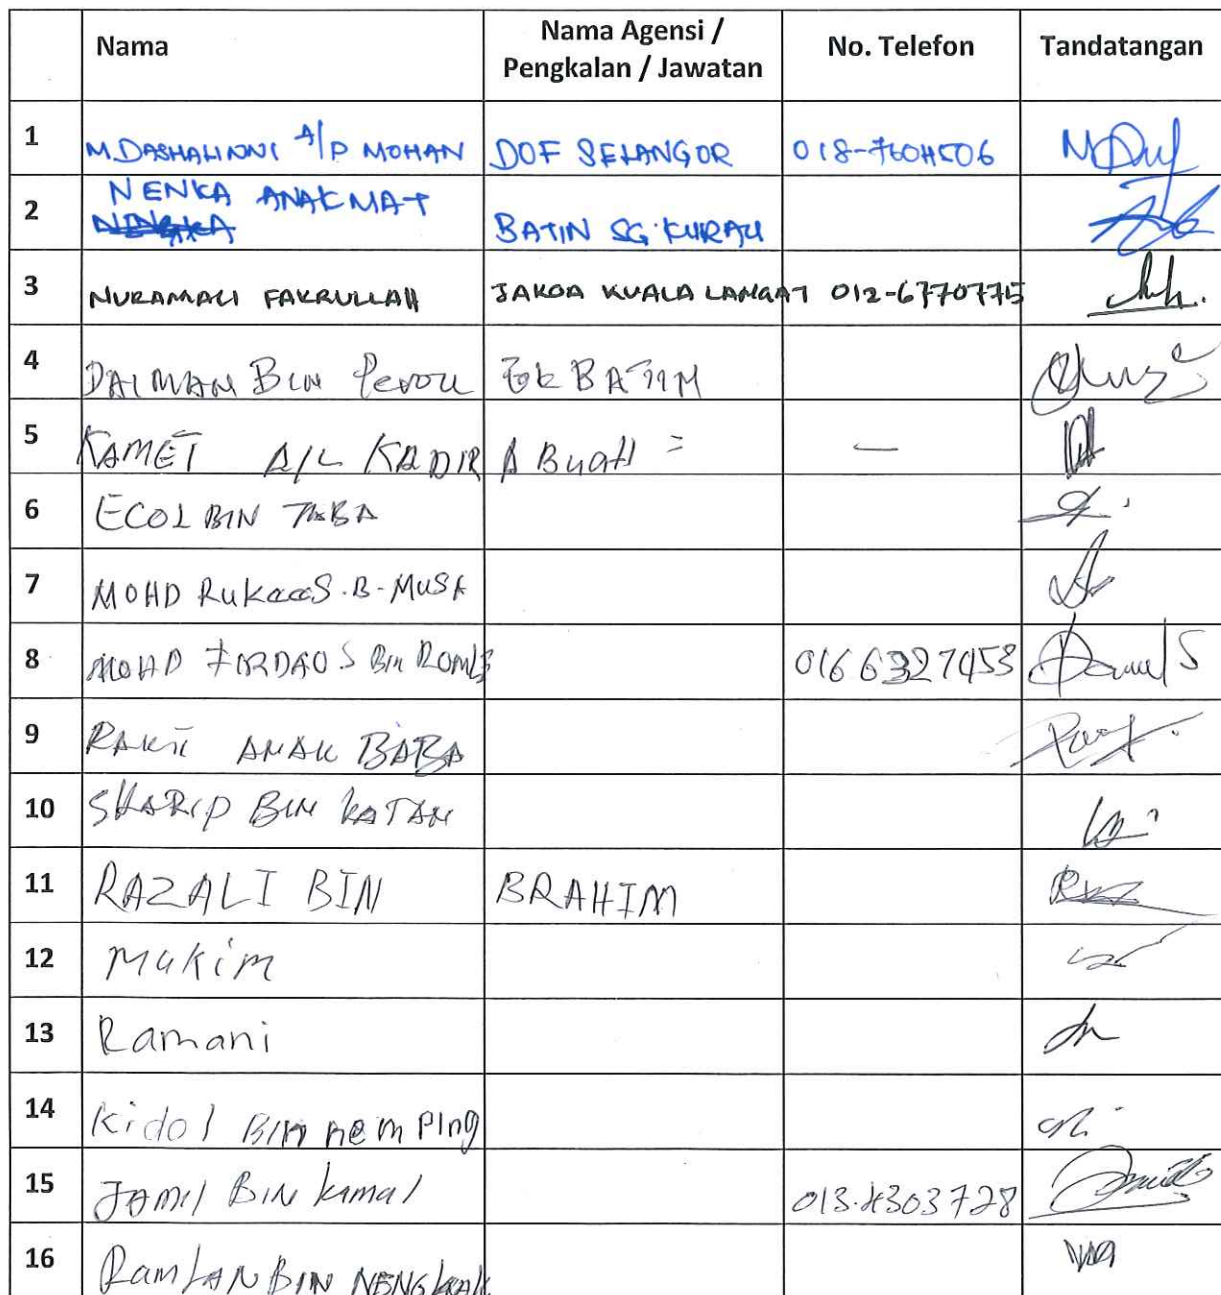 Nama | Nama Agensi / Pengkalan / Jawatan | No. Telefon | Tandatangan
1 | M.DASHALINNI A/P MOHAN | DOF SELANGOR | 018-7604506
2 | NENKA ANAK MAT | BATIN SG. KURAU
3 | NURAMALI FAKRULLAH | JAKOA KUALA LANGAT | 012-6770775
4 | DAIMAN BIN | TOK BATIN
5 | KAMET A/L KADIR | A BUAH = | —
6 | ECOL BIN
7 | MOHD B. MUSA
8 | MOHD FIRDAOS Bin ROMLI | 016 6327453
9 | ANAK BABA
10 | SHARIP BIN KATAN
11 | RAZALI BIN | BRAHIM
12 | Mukim
13 | Ramani
14 | Kidol BIN nem Ping
15 | JAMIL BIN kamal | 013.4303728
16 | RamLAN BIN